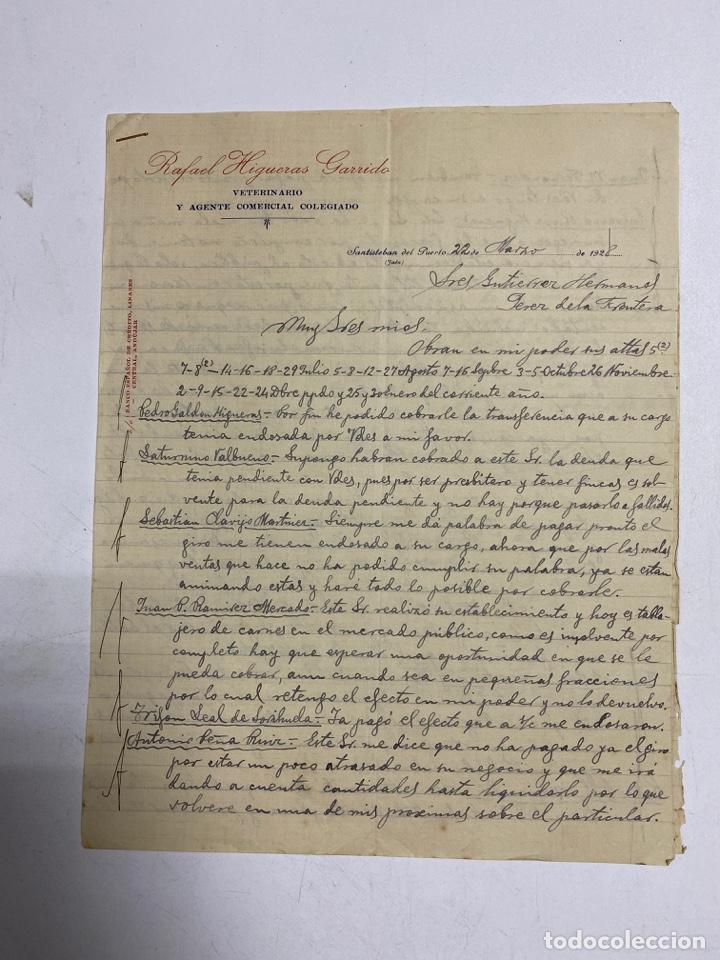 Rafael Higueras Garrido
VETERINARIO
Y AGENTE COMERCIAL COLEGIADO
BANCO ESPAÑOL DE CRÉDITO, LINARES
CENTRAL ANDÚJAR
Santisteban del Puerto 22 de Marzo de 1928
(Jaén)
Sres Gutierrez Hermanos
Jerez de la Frontera
Muy Sres mios:
Obran en mi poder sus attas 5(2)
7-8(2)-14-16-18-29 Julio 5-8-12-27 Agosto 7-16 Sepbre 3-5 Octubre 26 Noviembre
2-9-15-22-24 Dbre ppdo y 25 y 30 Enero del corriente año.
Pedro Galdon Higueras.- Por fin he podido cobrarle la transferencia que a su cargo
tenia endosada por Vdes a mi favor.
Saturnino Valbueno.- Supongo habran cobrado a este Sr. la deuda que
tenia pendiente con Vdes, pues por ser presbitero y tener fincas es sol-
vente para la deuda pendiente y no hay porque pasarlo a fallidos.
Sebastian Clavijo Martinez.- Siempre me dá palabra de pagar pronto el
giro me tienen endosado a su cargo, ahora que por las malas
ventas que hace no ha podido cumplir su palabra, ya se estan
animando estas y haré todo lo posible por cobrarle.
Juan P. Ramirez Mercado.- Este Sr. realizó su establecimiento y hoy es tabla-
jero de carnes en el mercado público, como es insolvente por
completo hay que esperar una oportunidad en que se le
pueda cobrar, aun cuando sea en pequeñas fracciones
por lo cual retengo el efecto en mi poder y no lo devuelvo.
Leal de Sorihuela.- Ya pagó el efecto que a s/c me endosaron.
Antonio Peña Ruiz.- Este Sr. me dice que no ha pagado ya el giro
por estar un poco atrasado en su negocio y que me irá
dando a cuenta cantidades hasta liquidarlo por lo que
volvere en una de mis proximas sobre el particular.
todocoleccion
todocoleccion.net